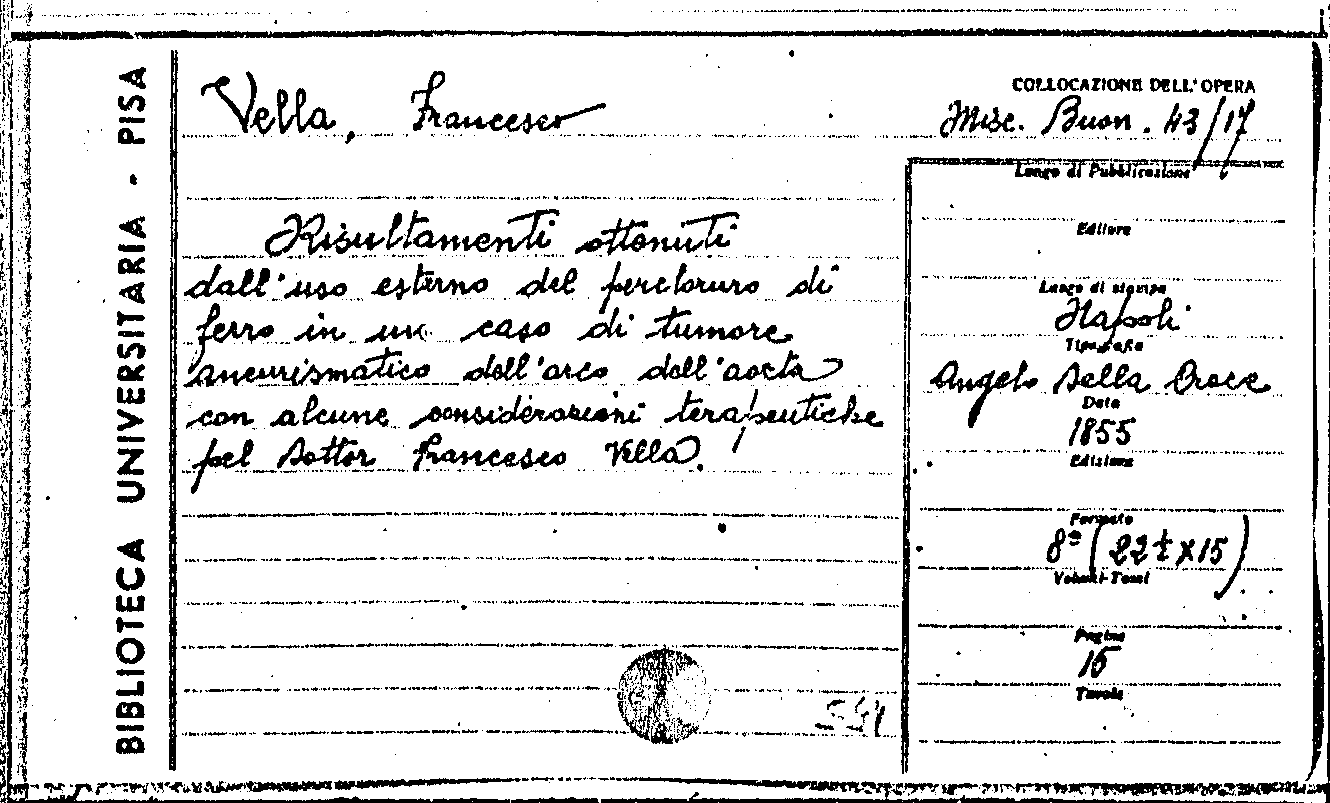 BIBLIOTECA UNIVERSITARIA - PISA
Vella, Francesco
COLLOCAZIONE DELL'OPERA
Misc. Buon. 43/17
Risultamenti ottenuti
dall'uso esterno del percloruro di
ferro in un caso di tumore
aneurismatico dell'arco dell'aorta
con alcune considerazioni terapeutiche
pel Dottor Francesco Vella.
Luogo di Pubblicazione
Editore
Luogo di stampa
Napoli
Tipografia
Angelo Della Croce
Data
1855
Edizione
Formato
8º (22½ x 15)
Volumi-Tomi
Pagine
15
Tavole